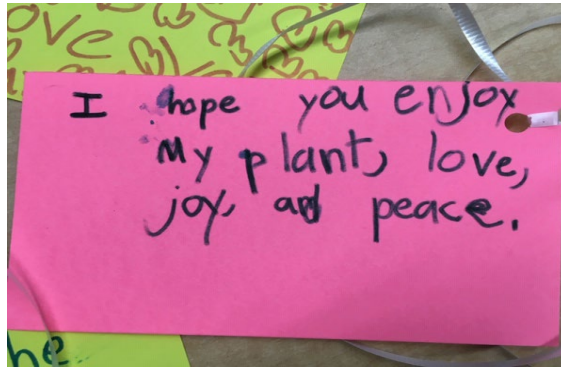 ove
I hope you enjoy
My plant, love,
joy, and peace.
he